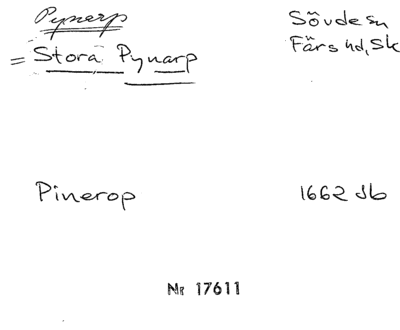 Pynarp
Sövde sn
Färs hd, Sk
= Stora Pynarp
Pinerop 1662 Jb
Nr 17611